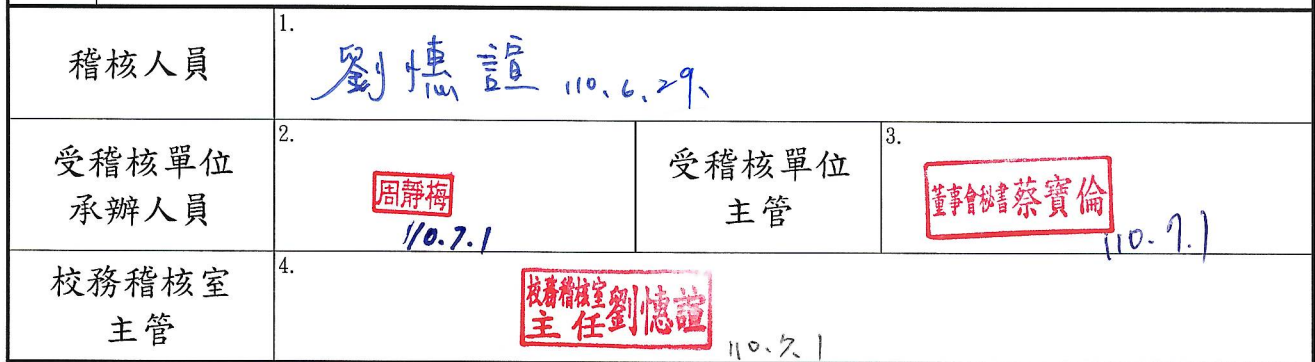 稽核人員
1.
劉憓諠 110.6.29、
受稽核單位
承辦人員
2.
周靜梅
110.7.1
受稽核單位
主管
3.
董事會秘書蔡寶倫
110.7.1
校務稽核室
主管
4.
校務稽核室
主任劉憓諠
110.7.1